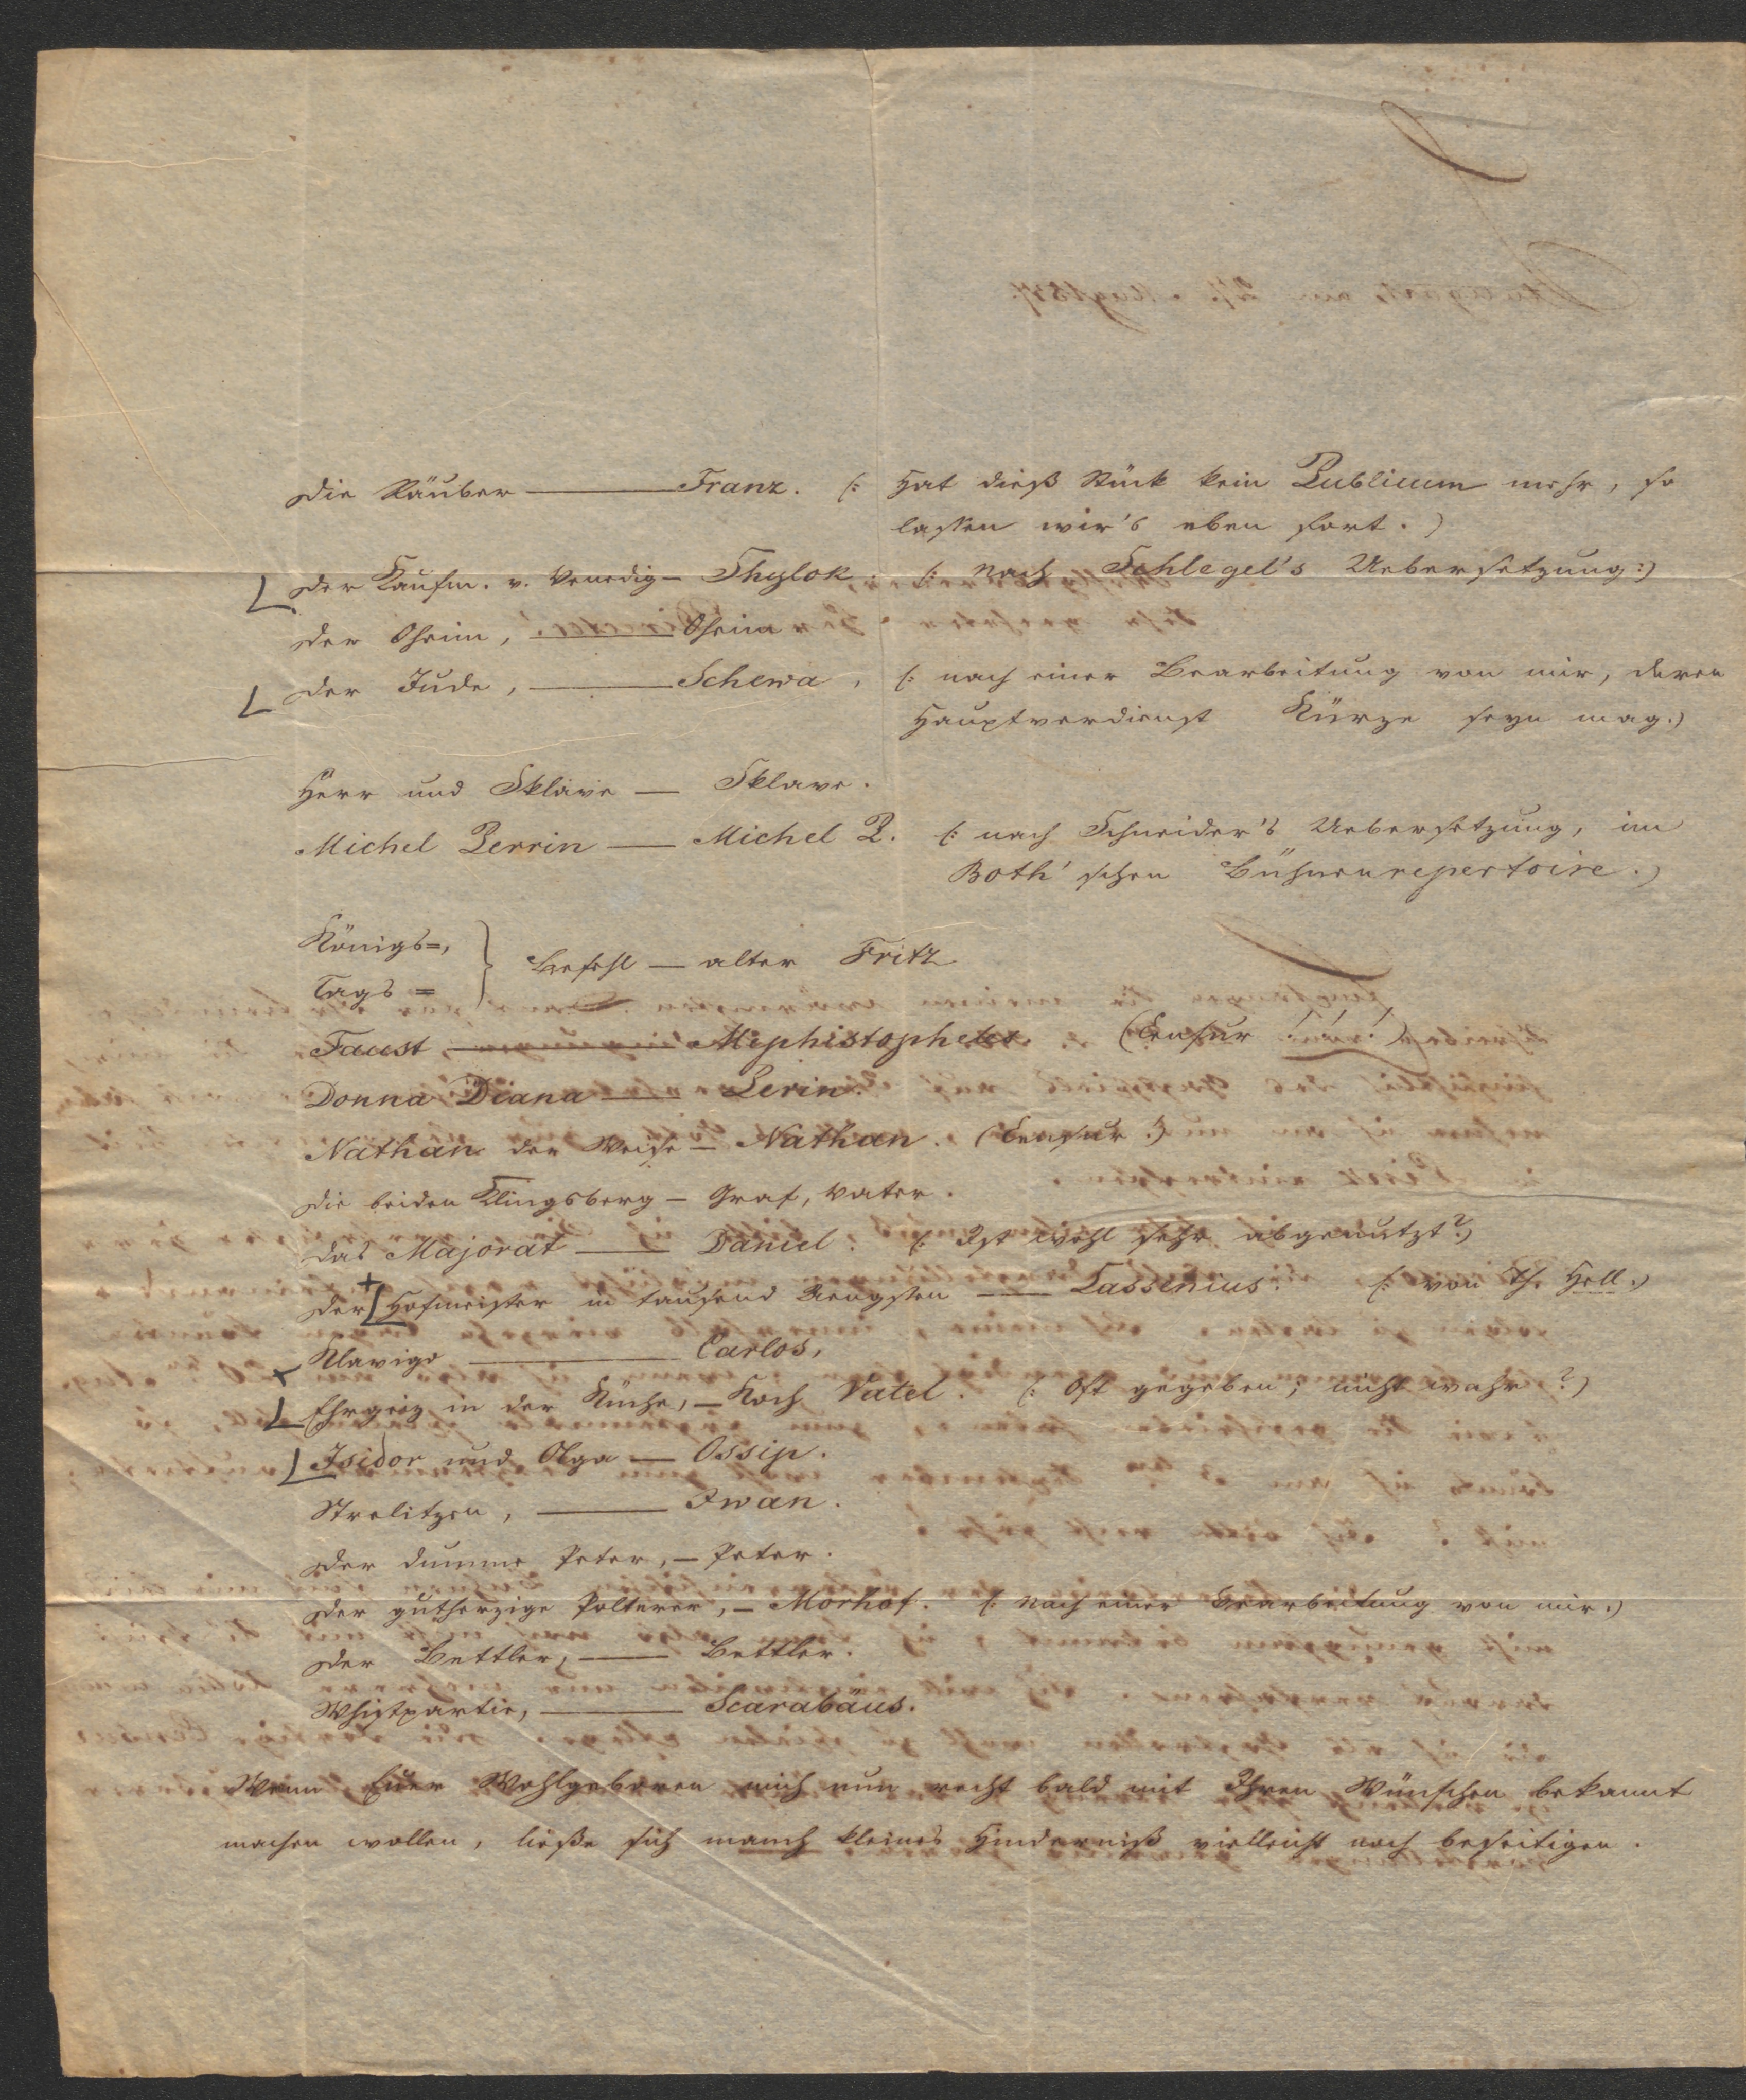 Die Räuber — Franz. (: Hat dieß Stück kein Publicum mehr, so
lassen wir's eben fort.)
Der Kaufm. v. Venedig — Shylok. (: Nach Schlegel's Uebersetzung:)
Der Oheim, — Oheim.
Der Jude, — Schewa, (: nach einer Bearbeitung von mir, deren
Hauptverdienst Kürze seyn mag.)
Herr und Sklave — Sklave.
Michel Perrin — Michel P. (: nach Schneider's Uebersetzung, im
Both'schen Bühnenrepertoire.)
Königs=,
Tags = } Befehl — alter Fritz
Faust, — Mephistopheles. (Censur !!!)
Donna Diana — Perin.
Nathan der Weise — Nathan. (Censur?)
Die beiden Klingsberg — Graf, Vater.
Das Majorat — Daniel. (: Ist wohl sehr abgenutzt?)
Der Hofmeister in tausend Aengsten — Lassenius. (: von Th. Hell.)
Klavigo — Carlos,
Ehrgeiz in der Küche, — Koch Vatel. (: Oft gegeben; nicht wahr?)
Isidor und Olga — Ossip.
Strelitzen, — Iwan.
Der dumme Peter, — Peter.
Der gutherzige Polterer, — Morhof. (: Nach einer Bearbeitung von mir.)
Der Bettler, — Bettler.
Whistpartie, — Scarabäus.
Wenn Euer Wohlgeboren mich nun recht bald mit Ihren Wünschen bekannt
machen wollen, ließe sich manch kleines Hinderniß vielleicht noch beseitigen.